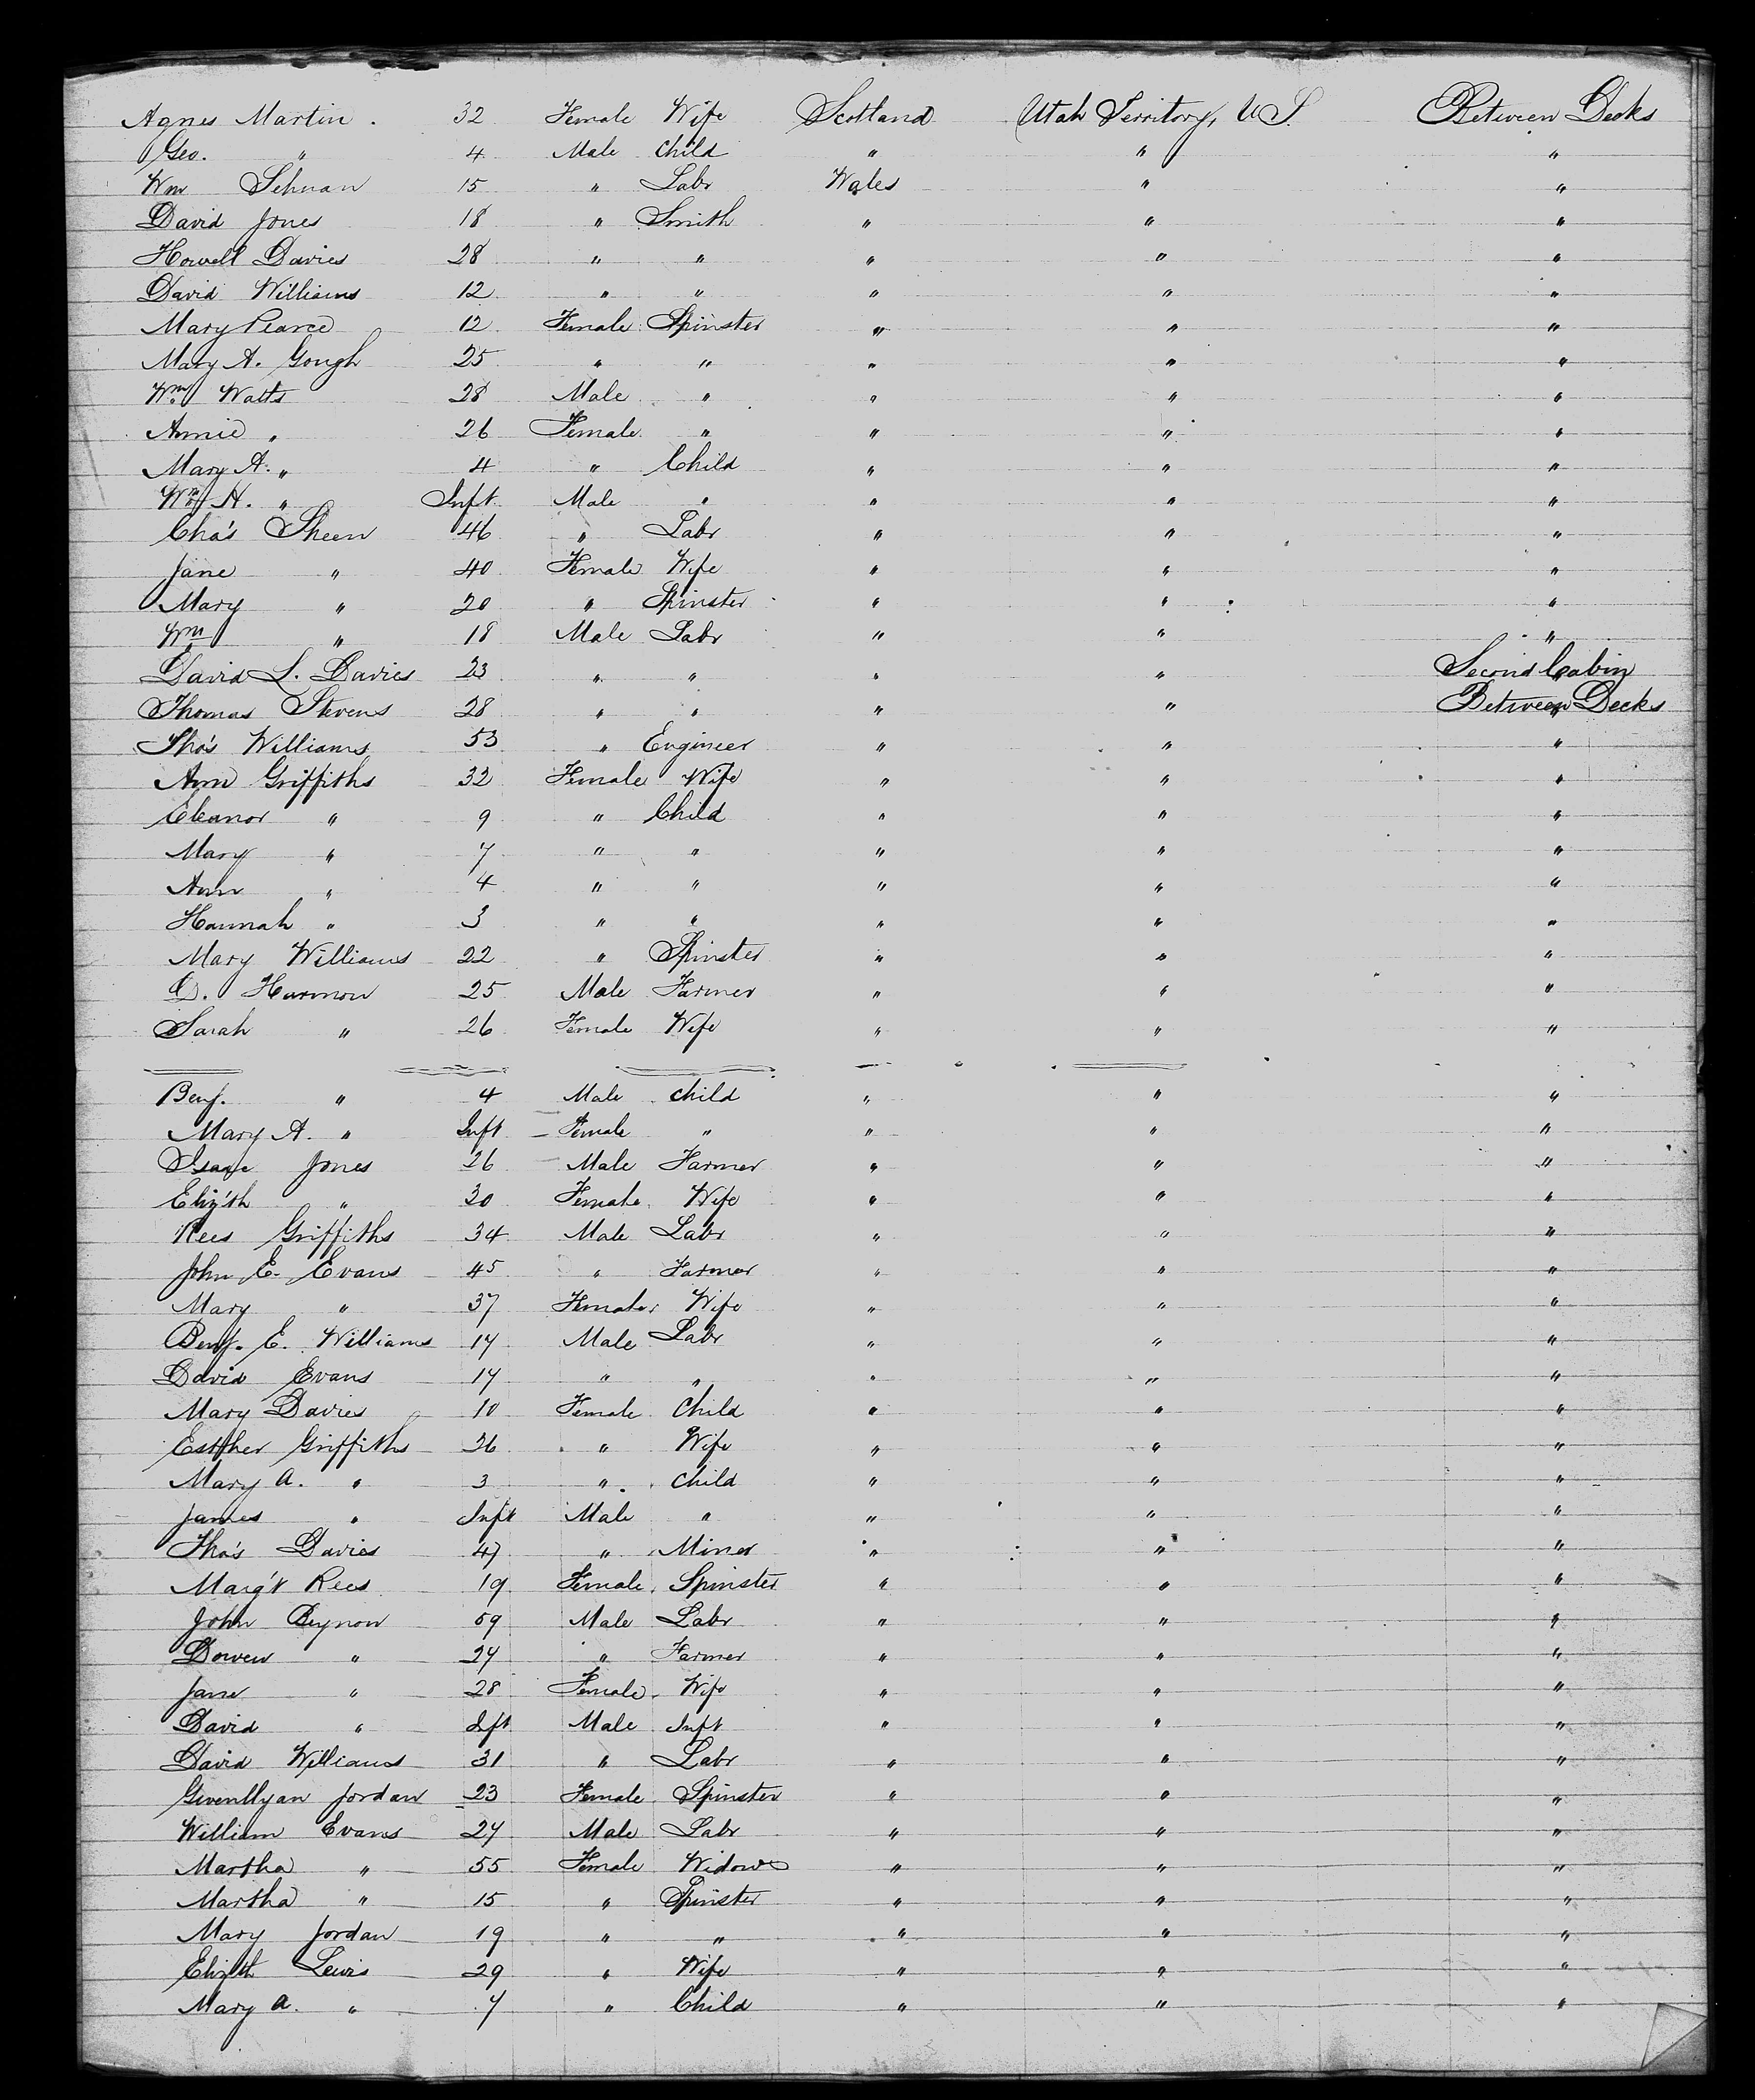 Agnes Martin . 32 Female Wife Scotland Utah Territory, U S. Between Decks
Geo. " 4 Male Child " " "
Wm 15 " Labr Wales " "
David Jones 18 " Smith " " "
Howell Davies 28 " " " " "
David Williams 12 " " " " "
Mary Pearce 12 Female Spinster " " "
Mary A. Gough 25 " " " " "
Wm Watts 28 Male " " " "
Annie " 26 Female " " " "
Mary A. " 4 " Child " " "
Wm H. " Inft. Male " " " "
Cha's Sheen 46 " Labr " " "
Jane " 40 Female Wife " " "
Mary " 20 " Spinster " " "
Wm " 18 Male Labr " " "
David L. Davies 23 " " " " Second Cabin
Thomas Stevens 28 " " " " Between Decks
Tho's Williams 53 " Engineer " " "
Ann Griffiths 32 Female Wife " " "
Eleanor " 9 " Child " " "
Mary " 7 " " " " "
Ann " 4 " " " " "
Hannah " 3 " " " " "
Mary Williams 22 " Spinster " " "
D. Harmon 25 Male Farmer " " "
Sarah " 26 Female Wife " " "
Benj. " 4 Male Child " " "
Mary A. " Inft Female " " " "
Isaac Jones 26 Male Farmer " " "
Eliz'th " 30 Female Wife " " "
Rees Griffiths 34 Male Labr " " "
John E. Evans 45 " Farmer " " "
Mary " 37 Female Wife " " "
Benj. E. Williams 17 Male Labr " " "
David Evans 17 " " " " "
Mary Davies 10 Female Child " " "
Esther Griffiths 26 " Wife " " "
Mary A. " 3 " Child " " "
James " Inft Male " " " "
Tho's Davies 47 " Miner " " "
Marg't Rees 19 Female Spinster " " "
John Beynon 59 Male Labr " " "
Bowen " 27 " Farmer " " "
Jane " 28 Female Wife " " "
David " Ift Male Inft " " "
David Williams 31 " Labr " " "
Gwenllyan Jordan 23 Female Spinster " " "
William Evans 27 Male Labr " " "
Martha " 55 Female Widow " " "
Martha " 15 " Spinster " " "
Mary Jordan 19 " " " " "
Eliz'th Lewis 29 " Wife " " "
Mary A. " 7 " Child " " "